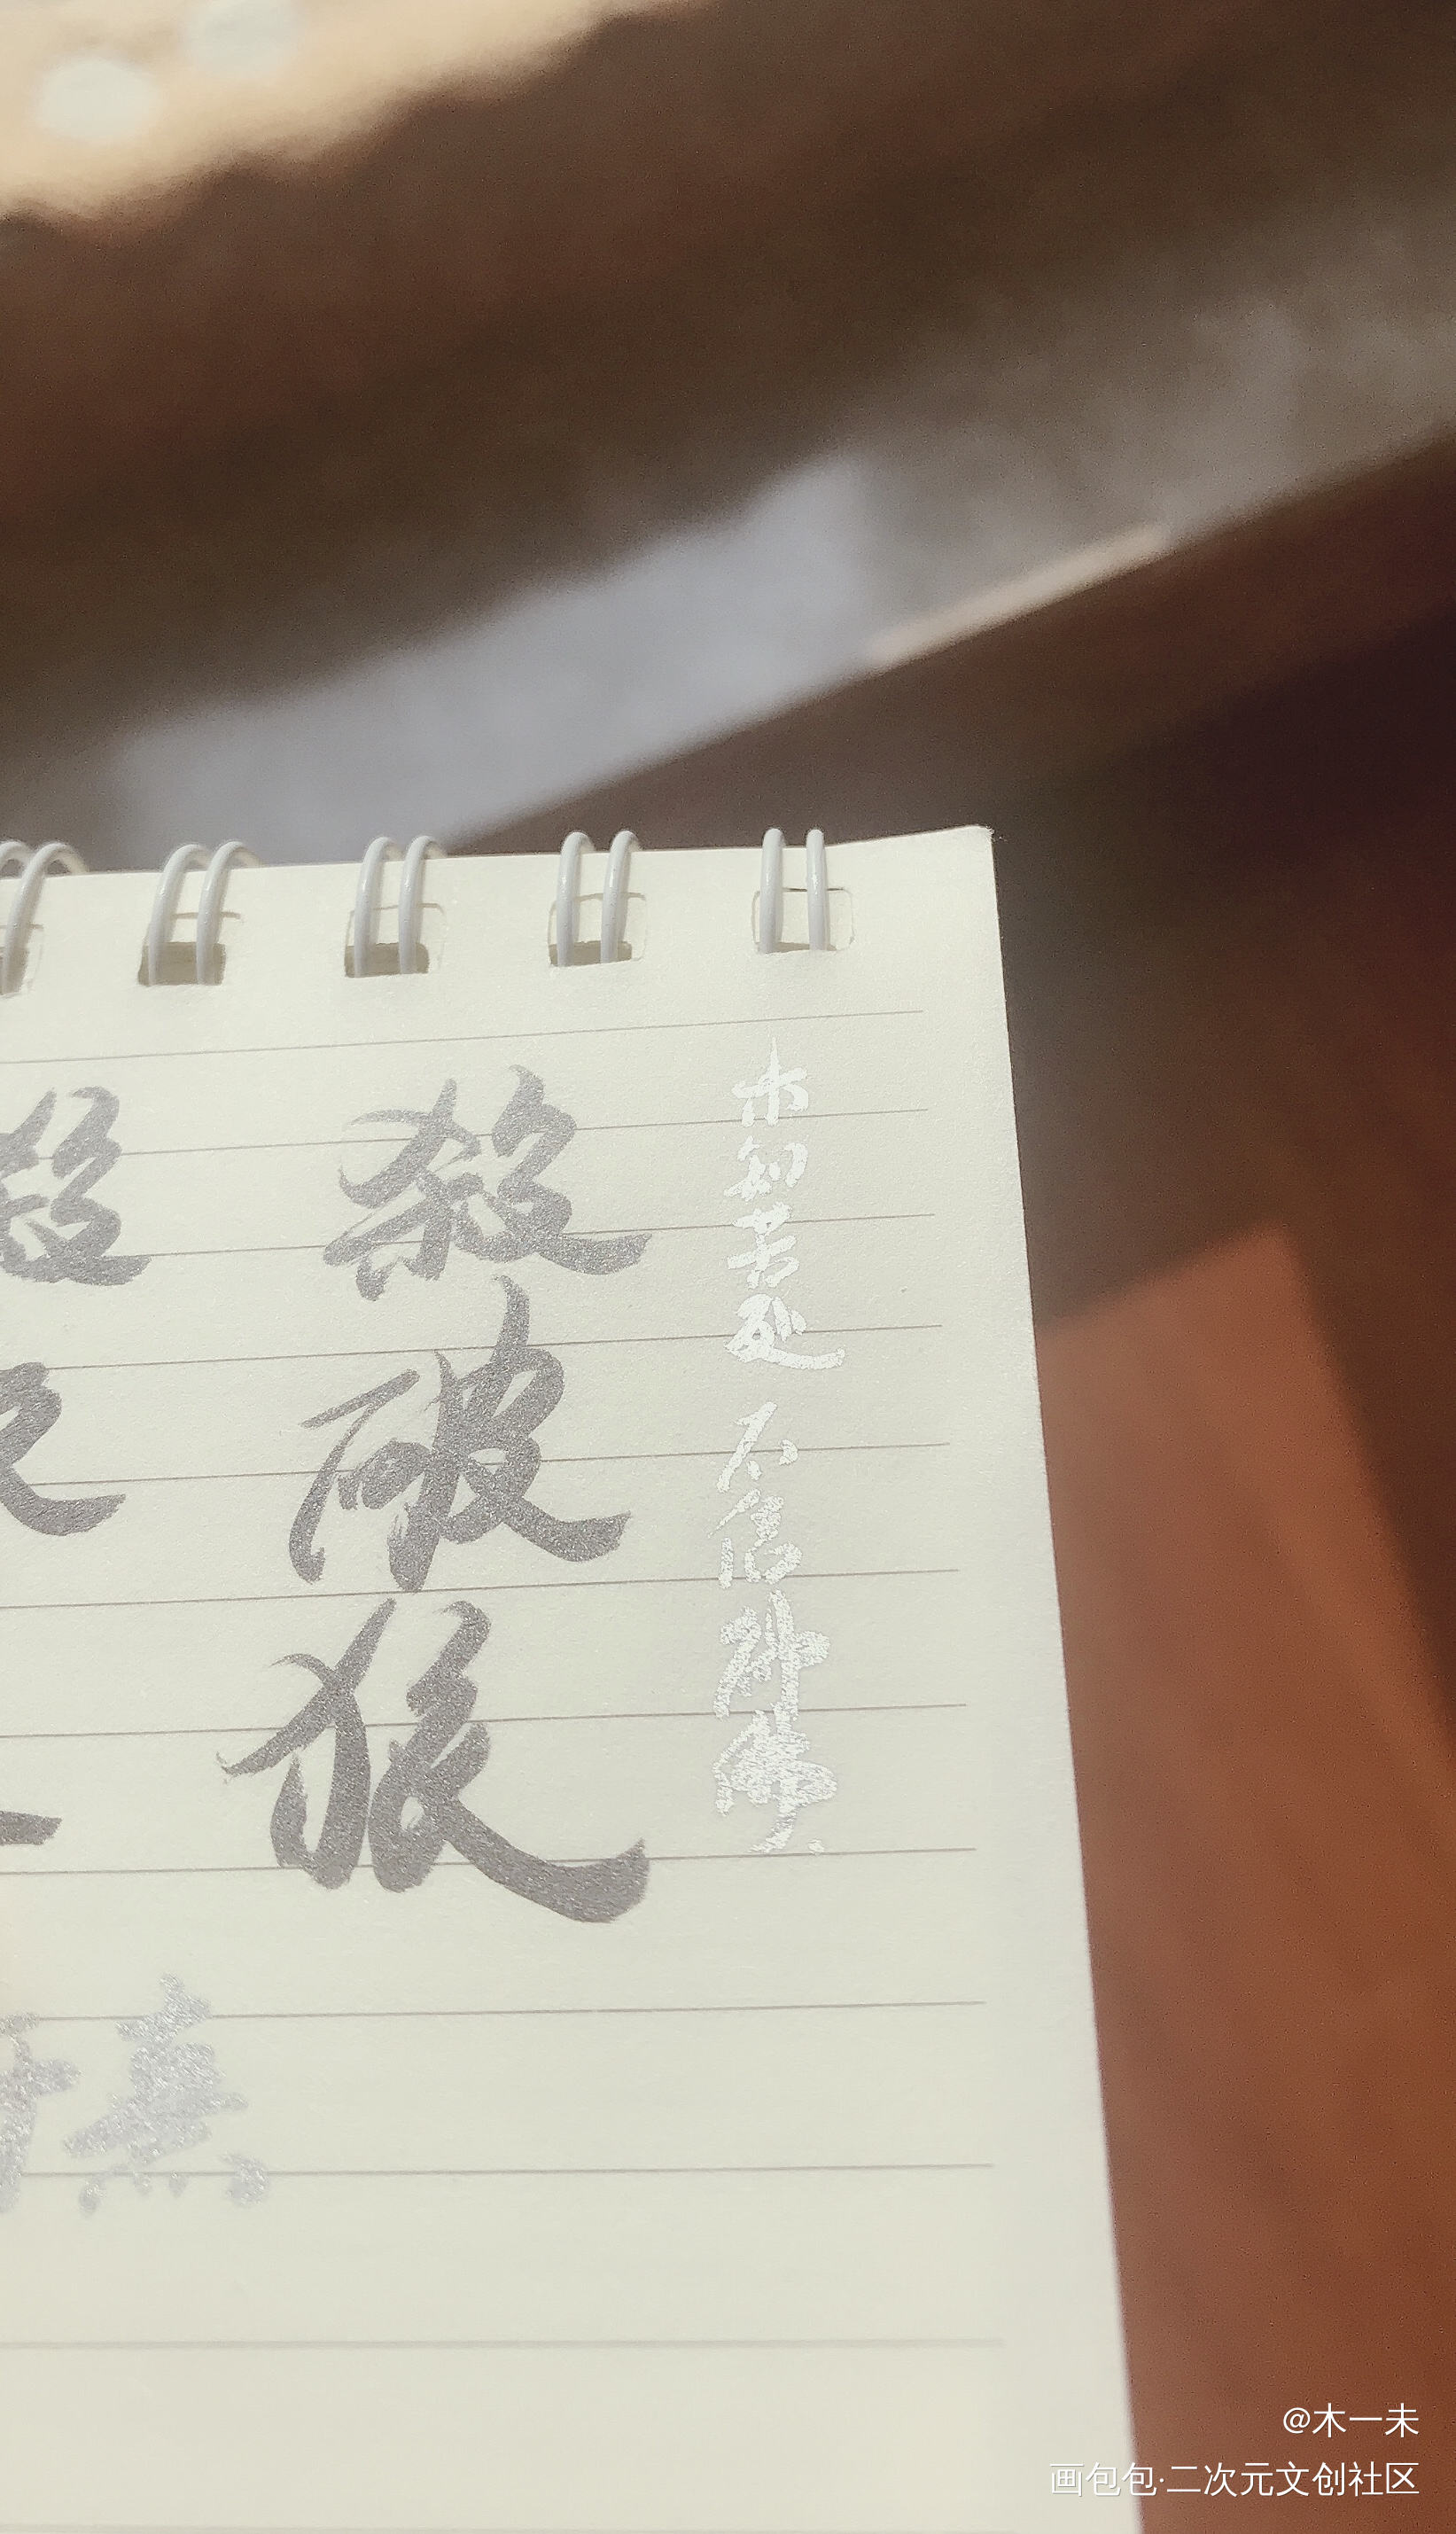 未知苦处 不信神佛
殺破狼
殺
熹
@木一未
画包包·二次元文创社区